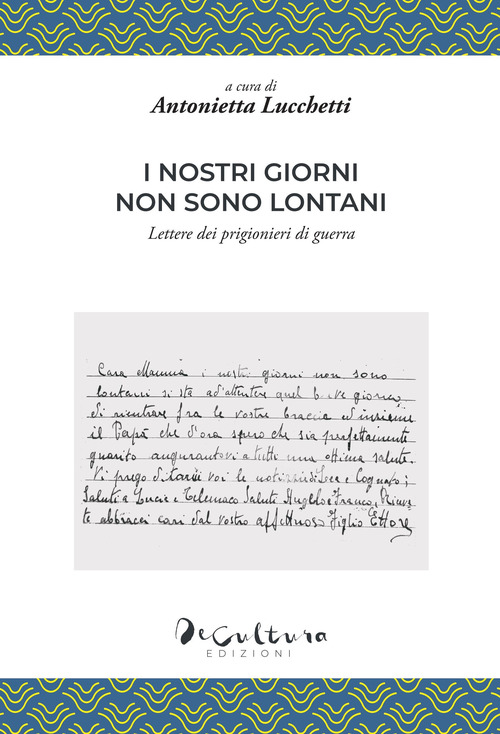 a cura di
Antonietta Lucchetti
I NOSTRI GIORNI
NON SONO LONTANI
Lettere dei prigionieri di guerra
Cara Mamma i nostri giorni non sono
lontani si sta ad'attentere quel breve giorno,
di rientrare fra le vostre braccia ed insieme
il Papà che d'ora spero che sia perfettamente
guarito augurantovi a tutti una ottima salute.
Vi prego di voi le notizie di e Cognato;
Saluti a Lucia e Telemaco Saluti Angelo e Franco,
te abbracci cari dal vostro affettuoso Figlio Ettore
DeCultura
EDIZIONI